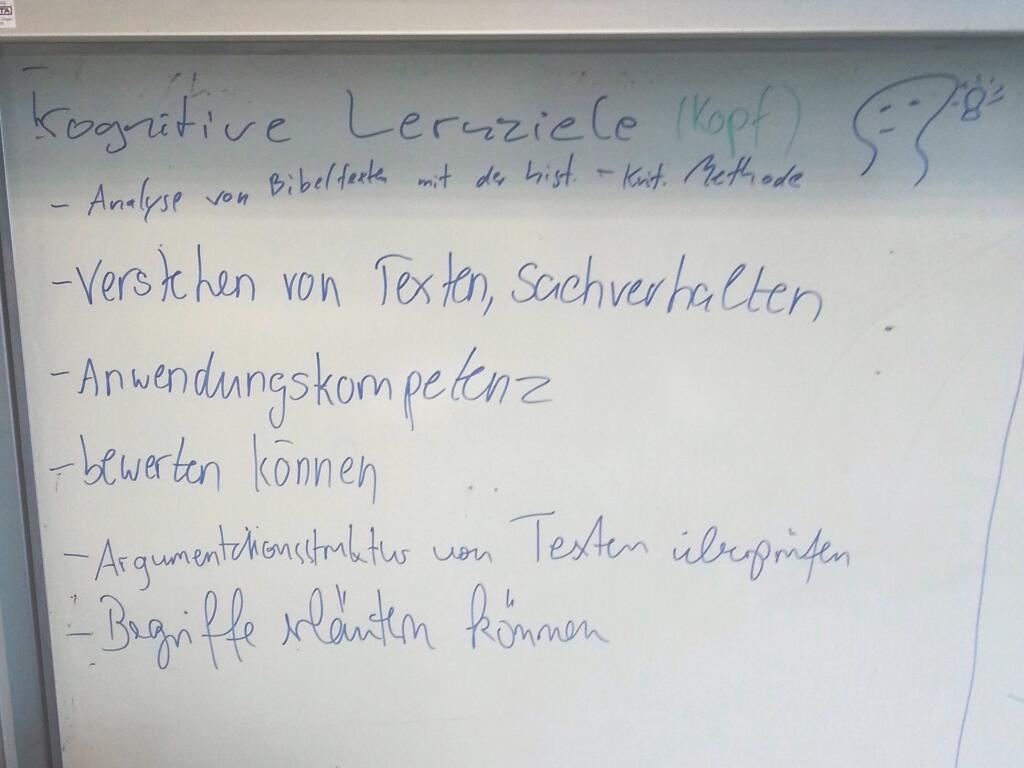 Kognitive Lernziele (Kopf)
- Analyse von Bibeltexten mit der hist. - krit. Methode
- Verstehen von Texten, Sachverhalten
- Anwendungskompetenz
- bewerten können
- Argumentationsstruktur von Texten überprüfen
- Begriffe erläutern können